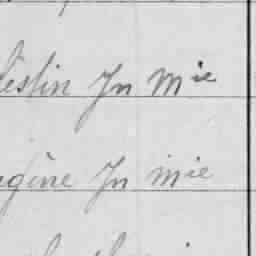 lestin Jn Mie
gène Jn mie